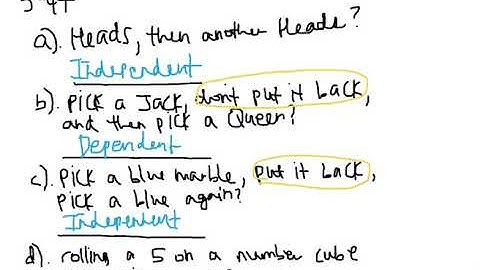 a). Heads, then another Heads?
Independent
b). Pick a Jack, don't put it back,
and then pick a Queen?
Dependent
c). Pick a blue marble, put it back,
pick a blue again?
Independent
d). rolling a 5 on a number cube